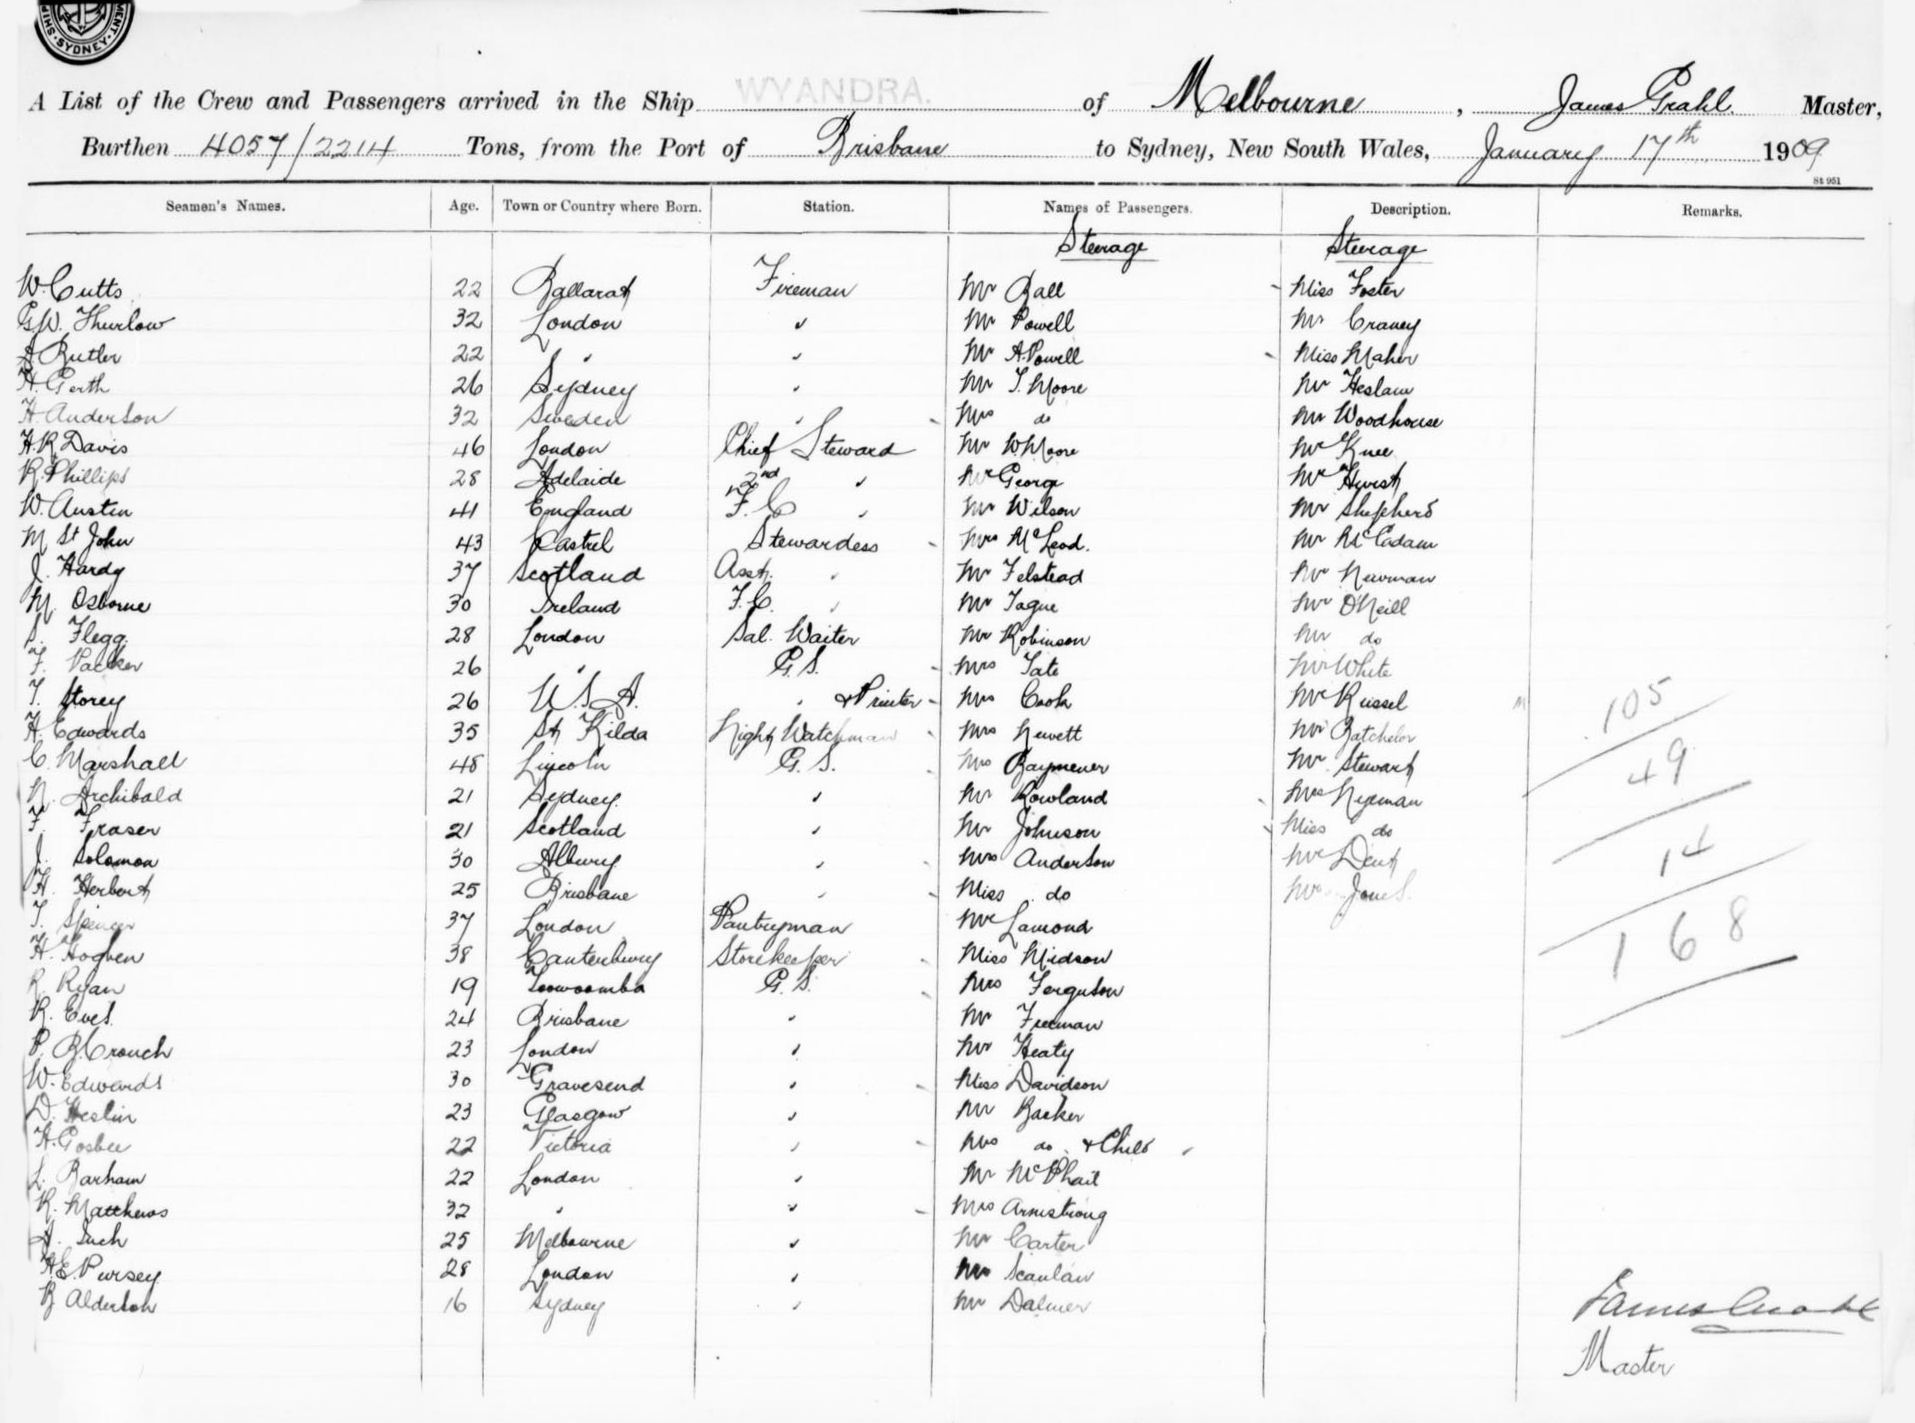 MENT. SYDNEY. SHIP
A List of the Crew and Passengers arrived in the Ship WYANDRA. of Melbourne, James Grahl Master,
Burthen 4057/2214 Tons, from the Port of Brisbane to Sydney, New South Wales, January 17th 1909
St 951
Seamen's Names. Age. Town or Country where Born. Station. Names of Passengers. Description. Remarks.
Steerage Steerage
W. Cutts 22 Ballarat Fireman Mr Ball Miss Foster
G.W. Thurlow 32 London " Mr Powell Mr Craney
A Butler 22 " " Mr A. Powell Miss Maher
H. Gerth 26 Sydney " Mr T. Moore Mr Heslam
H Anderson 32 Sweden " Mrs do Mr Woodhouse
H.R. Davis 46 London Chief Steward Mr W. Moore Mr Knee
R. Phillips 28 Adelaide 2nd " Mr George Mr Hurst
W. Austin 41 England F.C. " Mr Wilson Mr Shepherd
M St John 43 Stewardess Mrs McLeod. Mr McCadam
J. Hardy 37 Scotland Asst. " Mr Felstead Mr Newman
M. Osborne 30 Ireland F.C. " Mr Tague Mr O'Neill
S. Flegg 28 London Sal. Waiter Mr Robinson Mr do
F. Packer 26 " G.S. Mrs Tate Mr White
T. Storey 26 U.S.A. " & Printer Mrs Cook Mr Russel
H. Edwards 35 St Kilda Night Watchman Mrs Newett Mr Batchelor 105
C. Marshall 48 Lincoln G.S. Mrs Mr Stewart 49
N. Archibald 21 Sydney " Mr Rowland Mrs Nyeman
F. Fraser 21 Scotland " Mr Johnson Miss do
J. Solomon 30 Albury " Mrs Anderson Mr Dent 14
H. Herbert 25 Brisbane " Miss do Mr Jones
T. Spencer 37 London Pantryman Mr Lamond 168
H. Hogben 38 Canterbury Storekeeper Miss Midson
R Ryan 19 Toowoomba G.S. Mrs Ferguson
R. Eves 24 Brisbane " Mr Freeman
P. B. Crouch 23 London " Mr Heaty
W. Edwards 30 Gravesend " Miss Davidson
D. Heslin 23 Glasgow " Mr Barker
H. Gosbee 22 Victoria " Mrs do & Child
L. Barham 22 London " Mr McPhail
R. Matthews 32 " " Mrs Armstrong
A. Such 25 Melbourne " Mr Carter
H.E. Pursey 28 London " Mr Scanlan
B Alderson 16 Sydney " Mr Dalmer
James Grahl
Master